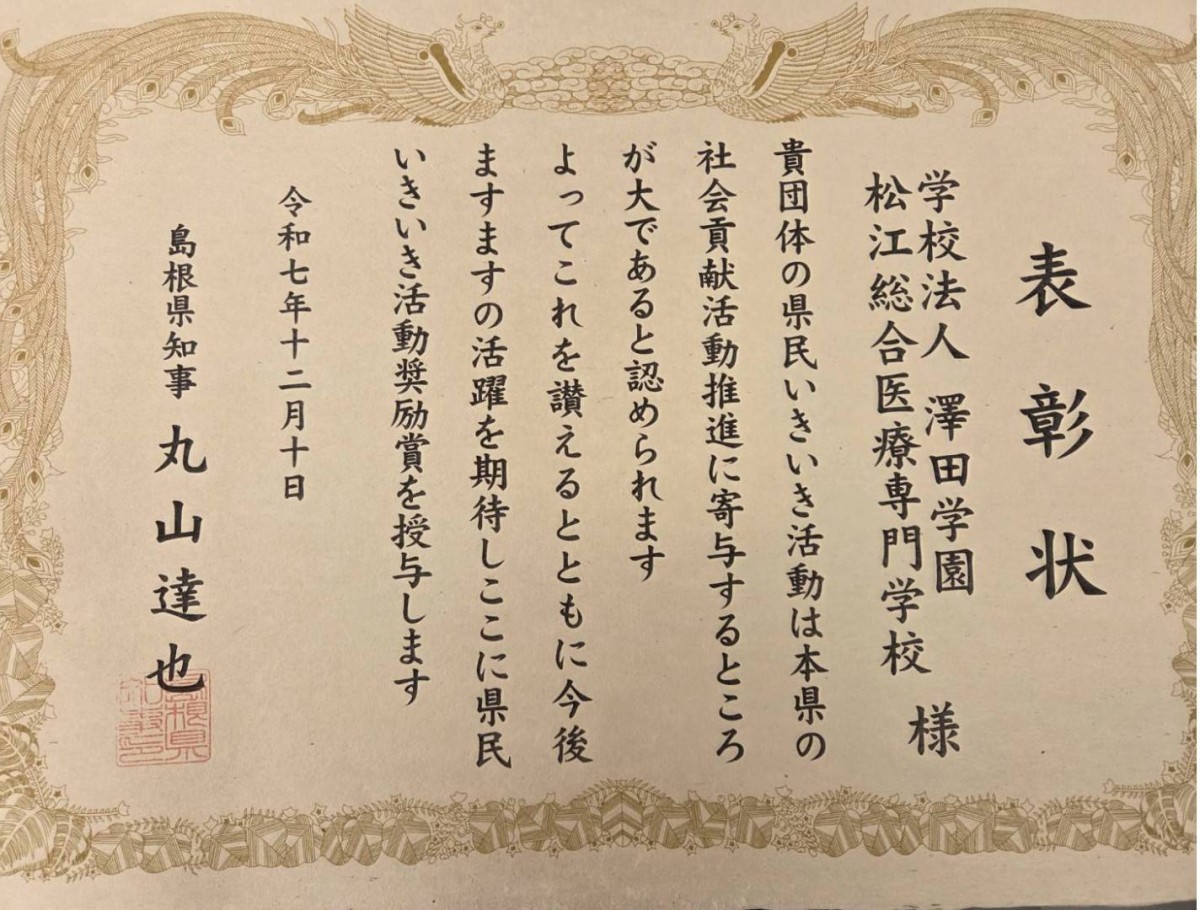 表彰状
学校法人 澤田学園
松江総合医療専門学校 様
貴団体の県民いきいき活動は本県の
社会貢献活動推進に寄与するところ
が大であると認められます
よってこれを讃えるとともに今後
ますますの活躍を期待しここに県民
いきいき活動奨励賞を授与します
令和七年十二月十日
島根県知事 丸山達也
島根県
知事之印